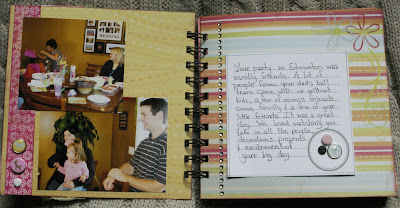 WEDDING
Your party in Edmonton was
mostly friends. A lot of
people from your dad's ball
team came with or without
kids, a few of mommy's friends
came, family & a few of your
little friends. It was a great
day. We loved watching you
take in all the people,
decorations, presents
& excitement of
your big day.